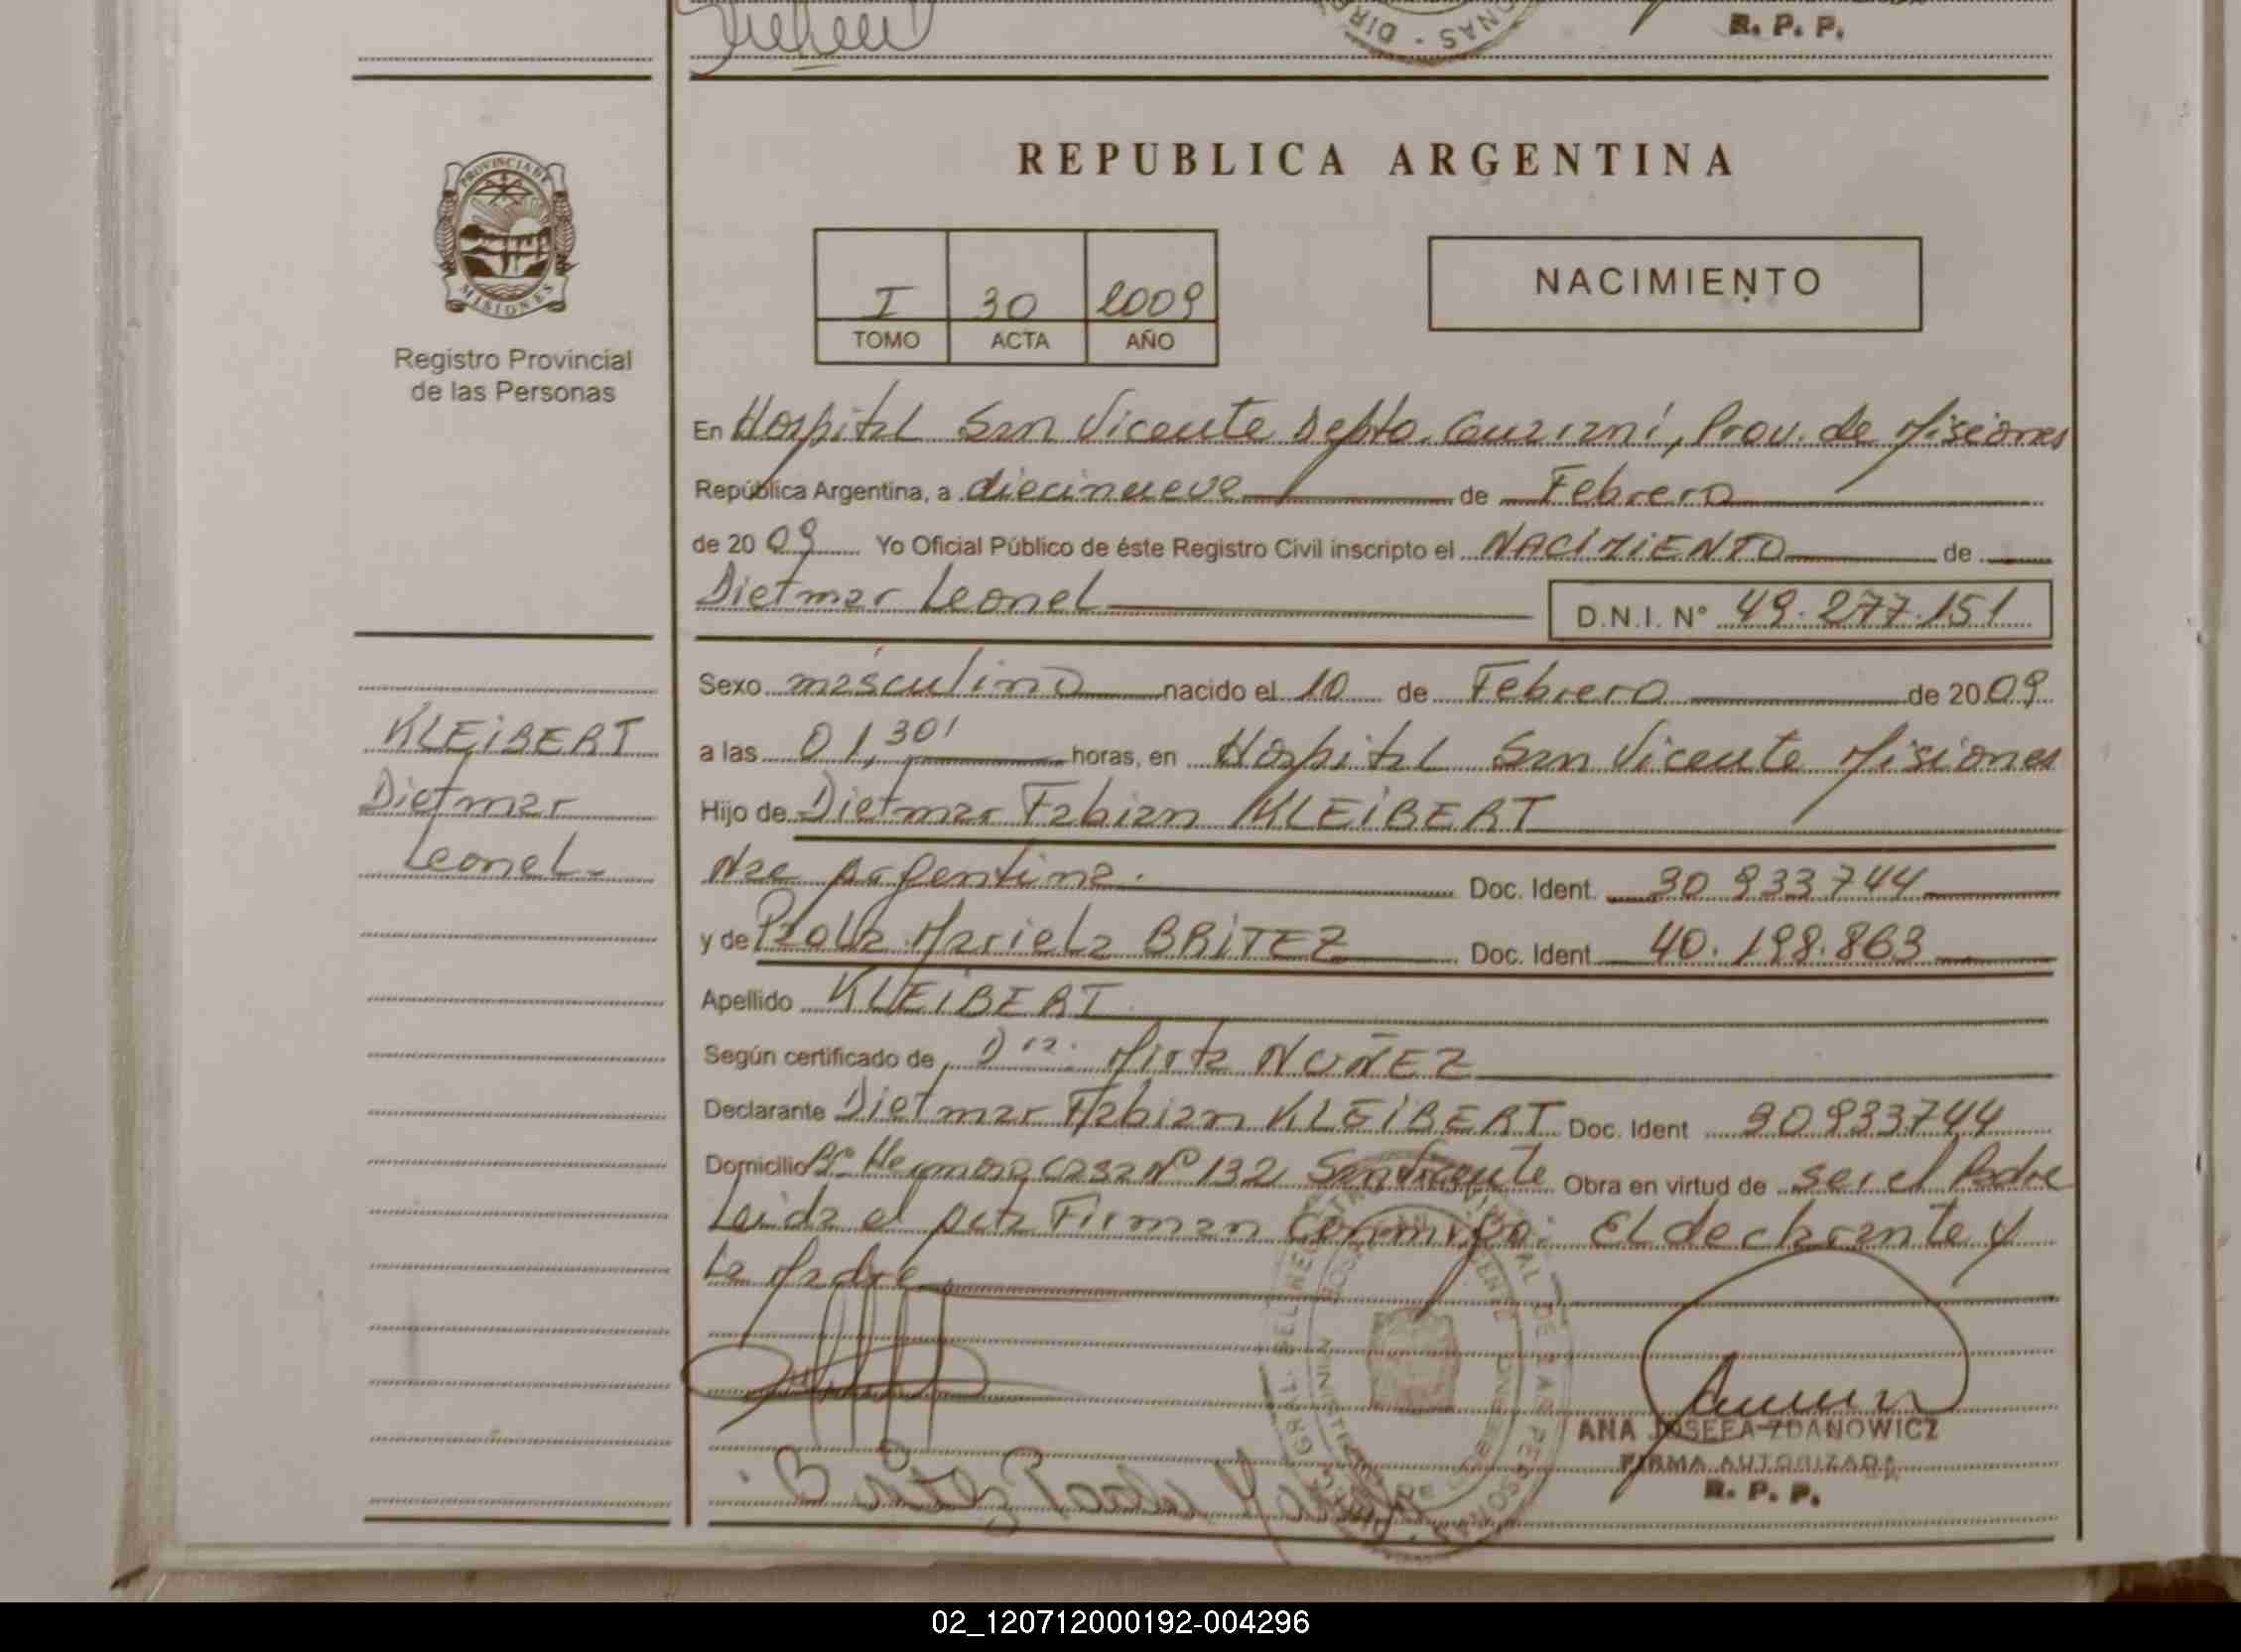 R. P. P.
REPUBLICA ARGENTINA
PROVINCIA DE
MISIONES
Registro Provincial
de las Personas
I 30 2009
TOMO ACTA AÑO
NACIMIENTO
En Hospital San Vicente Depto. Guaraní, Prov. de Misiones
República Argentina, a diecinueve de Febrero
de 2009 Yo Oficial Público de éste Registro Civil inscripto el NACIMIENTO de
Dietmar Leonel
D.N.I. N° 49.277.151
Sexo masculino nacido el 10 de Febrero de 2009
a las 01,30' horas, en Hospital San Vicente Misiones
Hijo de Dietmar Fabian KLEIBERT
Nac Argentina. Doc. Ident. 30 933 744
y de Paola Mariela BRITEZ Doc. Ident 40.198.863
Apellido KLEIBERT
Según certificado de Dra. Mirta NUÑEZ
Declarante Dietmar Fabian KLEIBERT Doc. Ident 30933744
Domicilio Bº Hermoso casa Nº 132 San Vicente Obra en virtud de ser el Padre
Leida el acta Firman conmigo: El declarante y
La Madre
KLEIBERT
Dietmar
Leonel-
Britez Paola
ANA JOSEFA ZDANOWICZ
FIRMA AUTORIZADA
R. P. P.
02_120712000192-004296